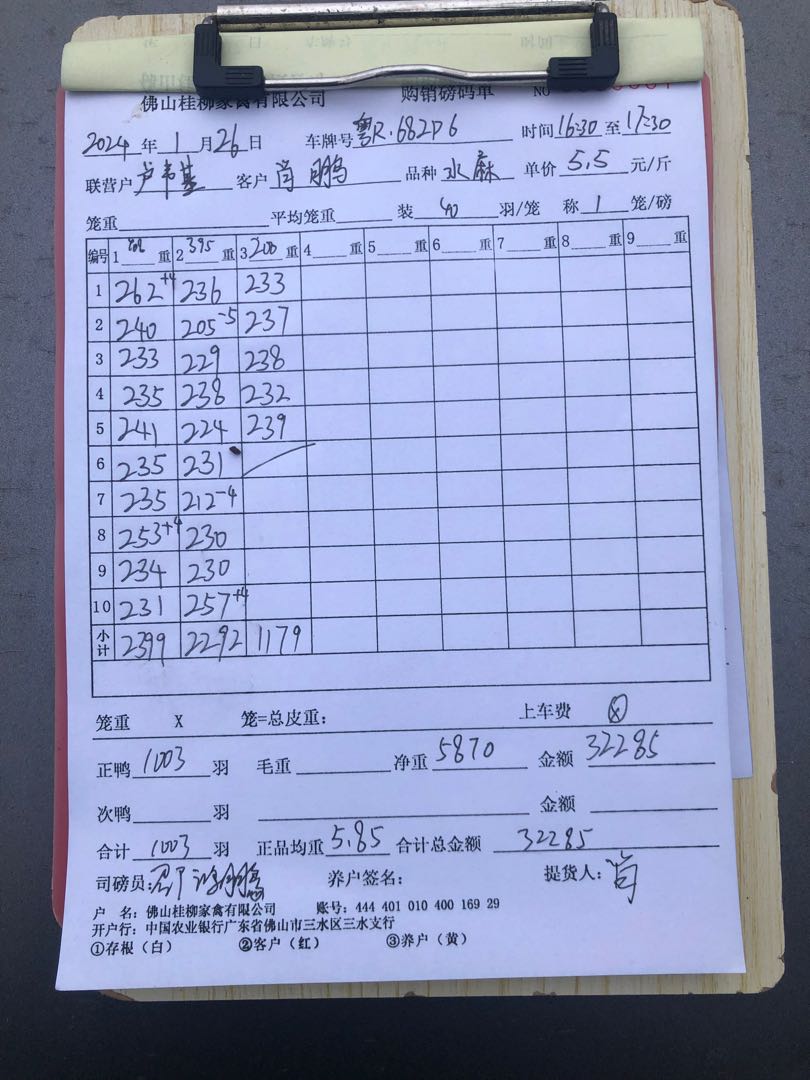 佛山桂柳家禽有限公司 购销磅码单 NO
2024 年 1 月 26 日 车牌号 粤R·682P6 时间 16:30 至 17:30
联营户 卢韦基 客户 肖鹏 品种 水麻 单价 5.5 元/斤
笼重 平均笼重 装 40 羽/笼 称 1 笼/磅
编号 1 重 2 395 重 3 200 重 4 重 5 重 6 重 7 重 8 重 9 重
1 262+4 236 233
2 240 205-5 237
3 233 229 238
4 235 238 232
5 241 224 239
6 235 231
7 235 212-4
8 253+4 230
9 234 230
10 231 257+4
小计 2399 2292 1179
笼重 X 笼=总皮重: 上车费
正鸭 1003 羽 毛重 净重 5870 金额 32285
次鸭 羽 金额
合计 1003 羽 正品均重 5.85 合计总金额 32285
司磅员: 养户签名: 提货人: 肖
户 名: 佛山桂柳家禽有限公司 账号: 444 401 010 400 169 29
开户行: 中国农业银行广东省佛山市三水区三水支行
①存根(白) ②客户(红) ③养户(黄)